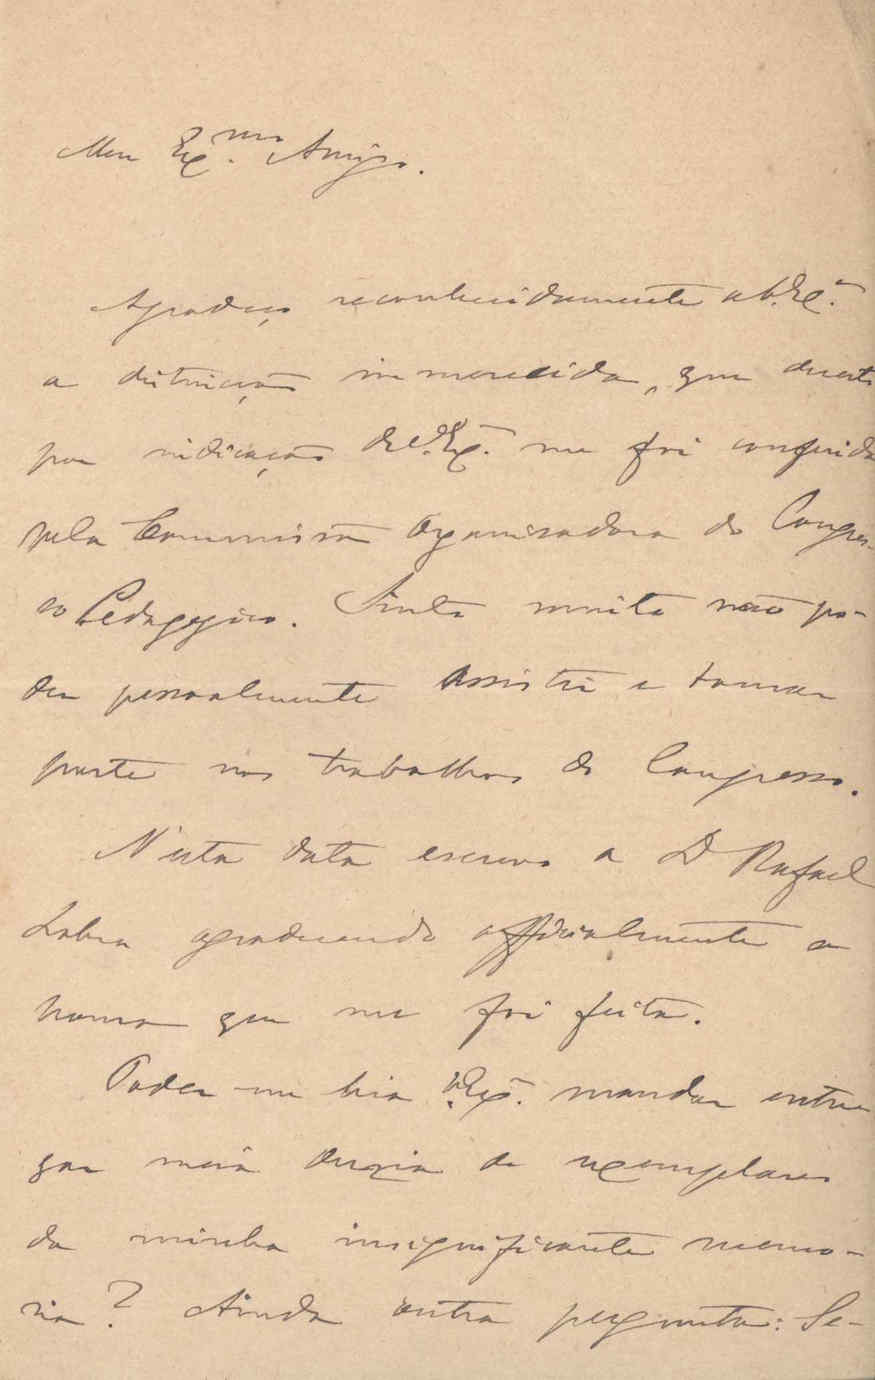 Meu Ex.mo Amigo.
Agradeço reconhecidamente a V. Exª.
a distincção immerecida, que decerto
por indicação de V. Exª. me foi conferida
pela Commissão Organisadora do Congres-
so Pedagogico. Sinto muito não po-
der pessoalmente assistir e tomar
parte nos trabalhos do Congresso.
N'esta data escrevo a D Rafael
Labra agradecendo officialmente a
honra que me foi feita.
Poder-me hia V. Exª. mandar entre
gar meia duzia de exemplares
da minha insignificante memo-
ria? Ainda outra pergunta: Se-